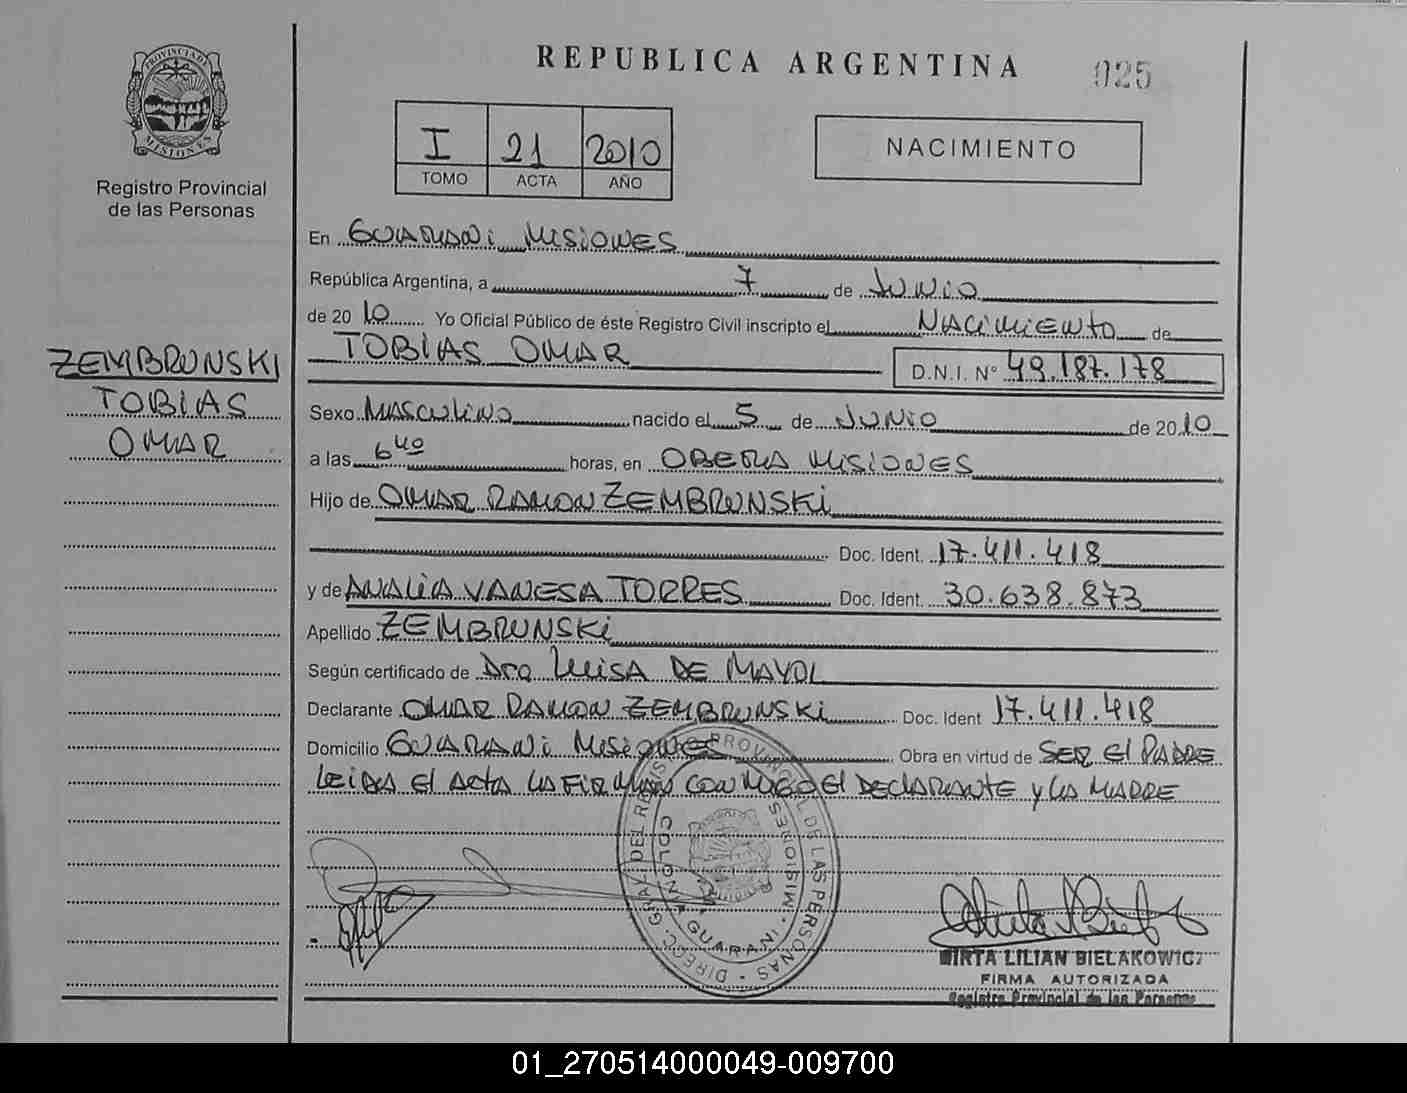 REPUBLICA ARGENTINA
025
PROVINCIA DE MISIONES
Registro Provincial
de las Personas
I 21 2010
TOMO ACTA AÑO
NACIMIENTO
En GUARANI MISIONES
República Argentina, a 7 de JUNIO
de 20 10 Yo Oficial Público de éste Registro Civil inscripto el NACIMIENTO de
TOBIAS OMAR D.N.I. N° 49.187.178
ZEMBRUNSKI
TOBIAS
OMAR
Sexo MASCULINO nacido el 5 de JUNIO de 20 10
a las 6 40 horas, en OBERA MISIONES
Hijo de OMAR RAMON ZEMBRUNSKI
Doc. Ident. 17.411.418
y de ANALIA VANESA TORRES Doc. Ident. 30.638.873
Apellido ZEMBRUNSKI
Según certificado de Dra LUISA DE MAYOL
Declarante OMAR RAMON ZEMBRUNSKI Doc. Ident 17.411.418
Domicilio GUARANI MISIONES Obra en virtud de SER El PADRE
LEIDA El ACTA LA FIRMAN CONMIGO El DECLARANTE y LA MADRE
DIREC. GRAL. DEL REGISTRO PROVINCIAL DE LAS PERSONAS
COLONIA GUARANI - MISIONES
MIRTA LILIAN BIELAKOWICZ
FIRMA AUTORIZADA
Registro Provincial de las Personas
01_270514000049-009700